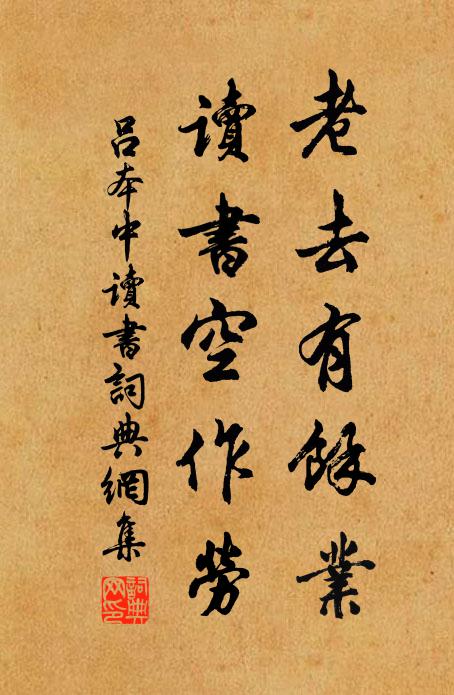 老去有餘業
讀書空作勞
吕本中讀書詞典網集
詞典网印